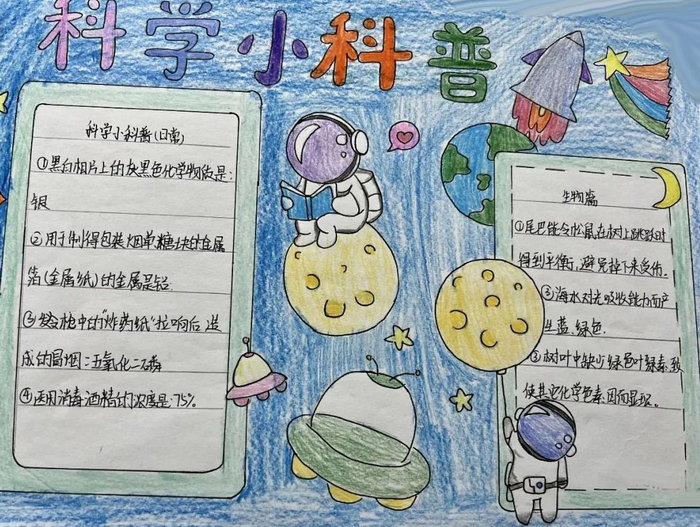 科学小科普
科学小科普(日常)
①黑白相片上的灰黑色化学物质是:
银
②用于制得包装烟草糖块的金属
箔(金属纸)的金属是铝.
③发令枪中的“炸药纸”拉响后,造
成的冒烟:五氧化二磷
④医用消毒酒精的浓度是:75%。
生物篇
①尾巴能令松鼠在树上跳跃时
得到平衡,避免掉下来受伤.
②海水对光吸收能力而产
生蓝.绿色.
③树叶中缺少绿色叶绿素,致
使其它化学色素因而显现.